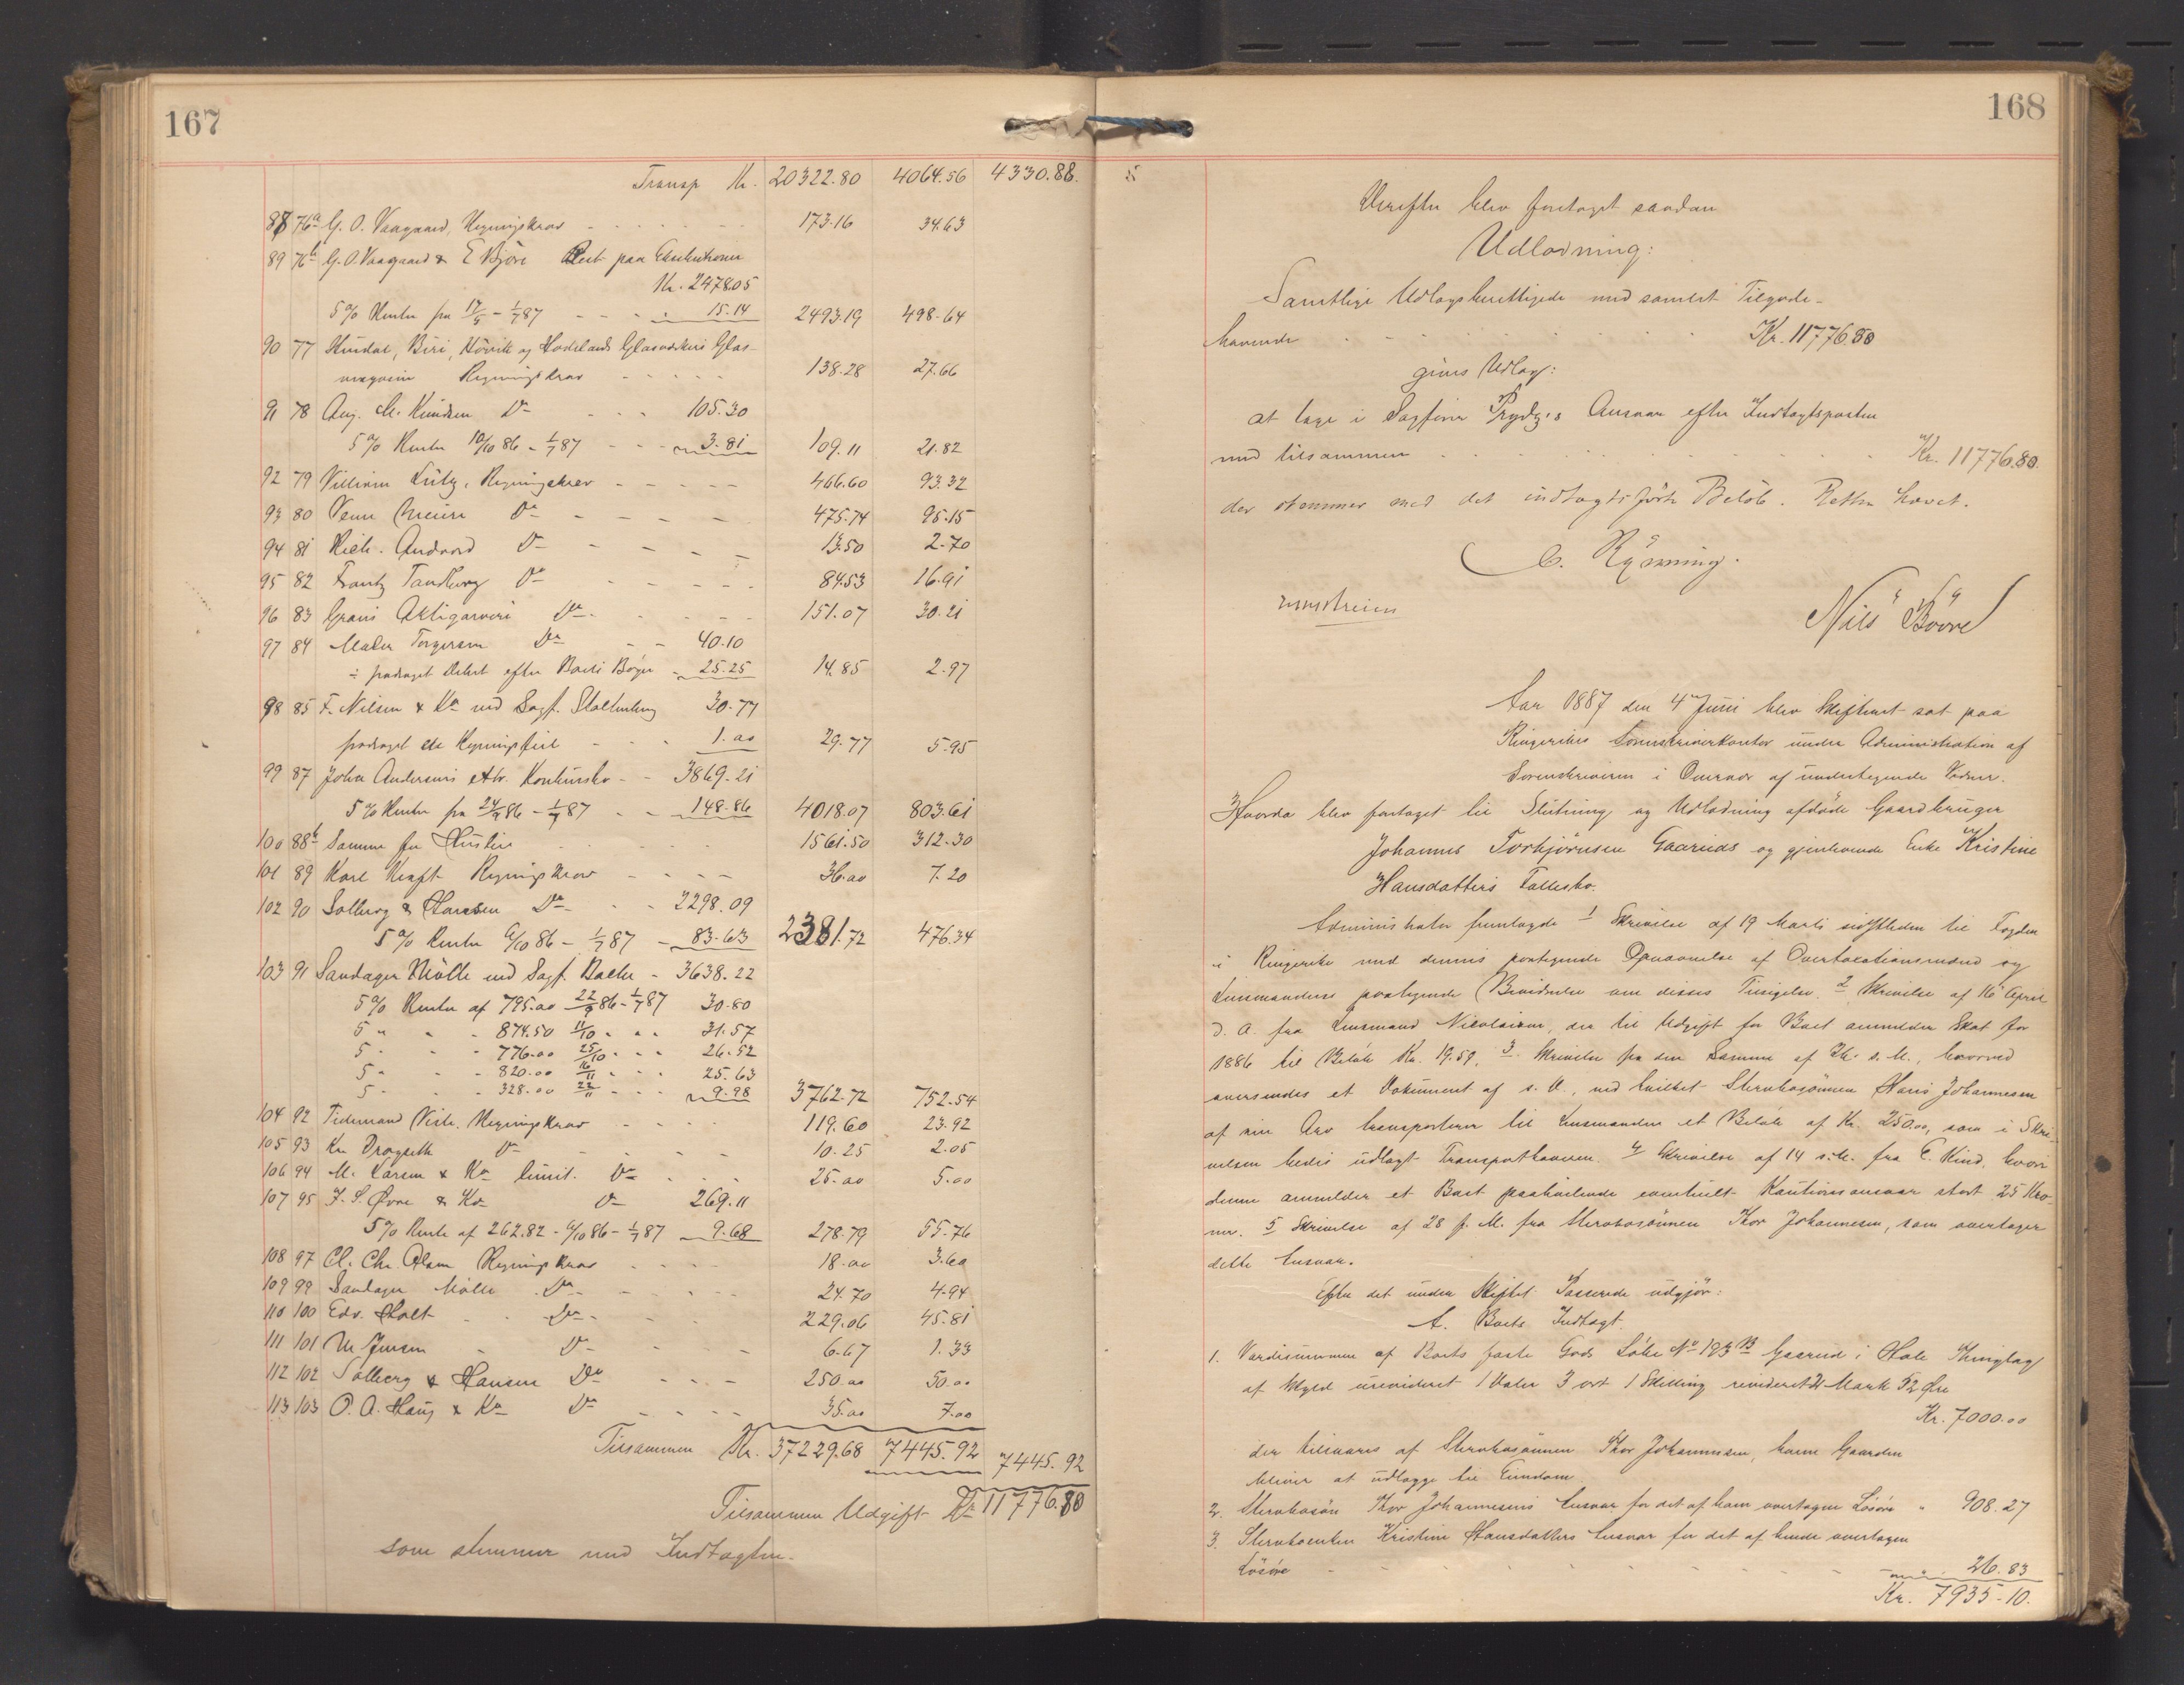 167
Transp Kr. 20322.80 4064.56 4330.88.
88 76a G. O. Vaagaard, Regningskrav 173.16 34.63
89 76b G. O. Vaagaard & E Björe Rest paa Exekutioner
Kr. 2478.05
5 % Renter fra 17/5 - 1/7 87 15.14 2493.19 498.64
90 77 Hurdal, Biri, Hövik og Hadelands Glasværkers Glas-
magasin Regningskrav 138.28 27.66
91 78 Aug. M. Knudsen Do 105.30
5 % Renter 10/10 86 - 1/7 87 3.81 109.11 21.82
92 79 Villiam Lütz, Regningskrav 466.60 93.32
93 80 Do 475.74 95.15
94 81 Rich. Andvord Do 13.50 2.70
95 82 Frantz Tandberg Do 84.53 16.91
96 83 Grans Do 151.07 30.21
97 84 Torgersen Do 40.10
÷ fradraget Debet efter Boets Böger 25.25 14.85 2.97
98 85 F. Nilsen & Ko ved Sagf. Stoltenberg 30.77
fradraget 1.00 29.77 5.95
99 87 Johan Andersens Konkursbo 3869.21
5 % Renter fra 24/9 86 - 1/7 87 148.86 4018.07 803.61
100 88b Samme for Husleie 1561.50 312.30
101 89 Karl Kraft Regningskrav 36.00 7.20
102 90 Solberg & Hansen Do 2298.09
5 % Renter 6/10 86 - 1/7 87 83.63 2381.72 476.34
103 91 Sandager Mölle ved Sagf. Bache 3638.22
5 % Renter af 795.00 22/9 86 - 1/7 87 30.80
5 " - - 874.50 11/10 " " 31.57
5 - - - 776.00 25/10 - - - 26.52
5 - - - 820.00 16/11 - - - 25.63
5 - - - 328.00 22/11 - - - 9.98 3762.72 752.54
104 92 Tidemand Regningskrav 119.60 23.92
105 93 Kr Dragseth Do 10.25 2.05
106 94 M. Larsen & Ko limit. Do 25.00 5.00
107 95 J. S. Øvre & Ko Do 269.11
5 % Rente af 262.82 - 6/10 86 - 1/7 87 9.68 278.79 55.76
108 97 Cl. Chr. Olsen Regningskrav 18.00 3.60
109 99 Sandager Mölle Do 24.70 4.94
110 100 Edv. Holt Do 229.06 45.81
111 101 M Jensen Do 6.67 1.33
112 102 Solberg & Hansen Do 250.00 50.00
113 103 O. A. Haug & Ko Do 35.00 7.00
Tilsammen Kr. 37229.68 7445.92 7445.92
Tilsammen Udgift Kr 11776.80
som stemmer med Indtægten.
168
Derefter blev foretaget saadan
Udlodning:
Samtlige Udlagsberettigede med samlet Tilgode-
havende Kr. 11776.80
gives Udlæg:
at tage i Sagförer Prydz's Ansvar efter Indtægtsposten
med tilsammen Kr. 11776.80.
der stemmer med det indtægtsförte Belöb. Retten hævet.
C. Rynning.
Nils Böore
Aar 1887 den 4de Juni blev Skifteret sat paa
Ringerikes Sorenskriverkontor under Administration af
Sorenskriveren i Overvær af undertegnede Vidner.
Hvorda blev foretaget til Slutning og Udlodning afdöde Gaardbruger
Johannes Torbjörnsen Gaaruds og gjenlevende Enke Kristine
Hansdatters Fællesbo.
Administrator fremlagde 1 Skrivelse af 19 Marts sidstleden til Fogden
i Ringerike med dennes paategnede Opnævnelse af Overtaxationsmænd og
Lensmandens paategnede Bevidnelse om disses Tilsigelse. 2 Skrivelse af 16 April
d. A. fra Lensmand Nicolaisen, der til Udgift for Boet anmelder Skat for
1886 til Belöb Kr. 19.59. 3. Skrivelse fra den samme af s. M., hvorved
oversendes et Dokument af s. D., ved hvilket Stervbosönnen Hans Johannesen
af sin Arv transporterer til Lensmanden et Belöb af Kr. 250.00, som i Skri-
velsen bedes udlagt Transporthaveren. 4 Skrivelse af 14 s. M. fra E. Kind, hvori
denne anmelder et Boet paahvilende eventuelt Kautionsansvar stort 25 Kro-
ner. 5 Skrivelse af 28 f. M. fra Stervbosönnen Thor Johannesen, som overtager
dette Ansvar.
Efter det under Skiftet Passerede udgjör:
A. Boets Indtægt.
1. Værdisummen af Boets faste Gods Löbe No 193 B Gaarud i Hole Thinglag
af Skyld urevideret 1 Daler 3 ort 1 Skilling revideret 4 Mark 52 Øre
Kr. 7000.00
der tilsvares af Stervbosönnen Thor Johannesen, hvem Gaarden
bliver at udlægge til Eiendom.
2. Stervbosön Thor Johannesens Ansvar for det af ham overtagne Lösöre " 908.27
3. Stervboenken Kristine Hansdatters Ansvar for det af hende overtagne
Lösöre 26.83
Kr. 7935.10.